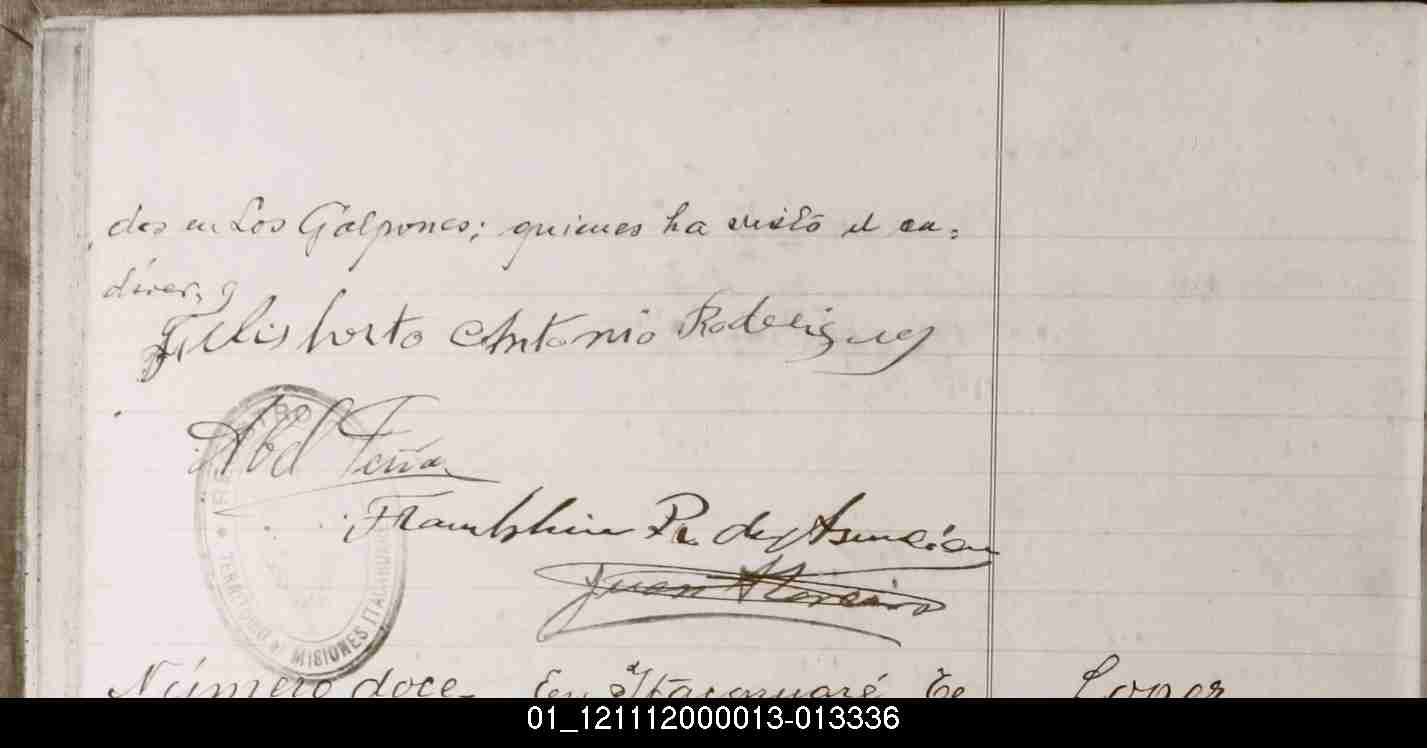 dos en Los Galpones; quienes ha visto el ca=
dáver,
Antonio Rodriguez
Abel Feria
Franklin R. de Asunción
Juan
TERRITORIO N. MISIONES ITACARUARE
Número doce En Itacaruaré Te
Lopez
01_121112000013-013336